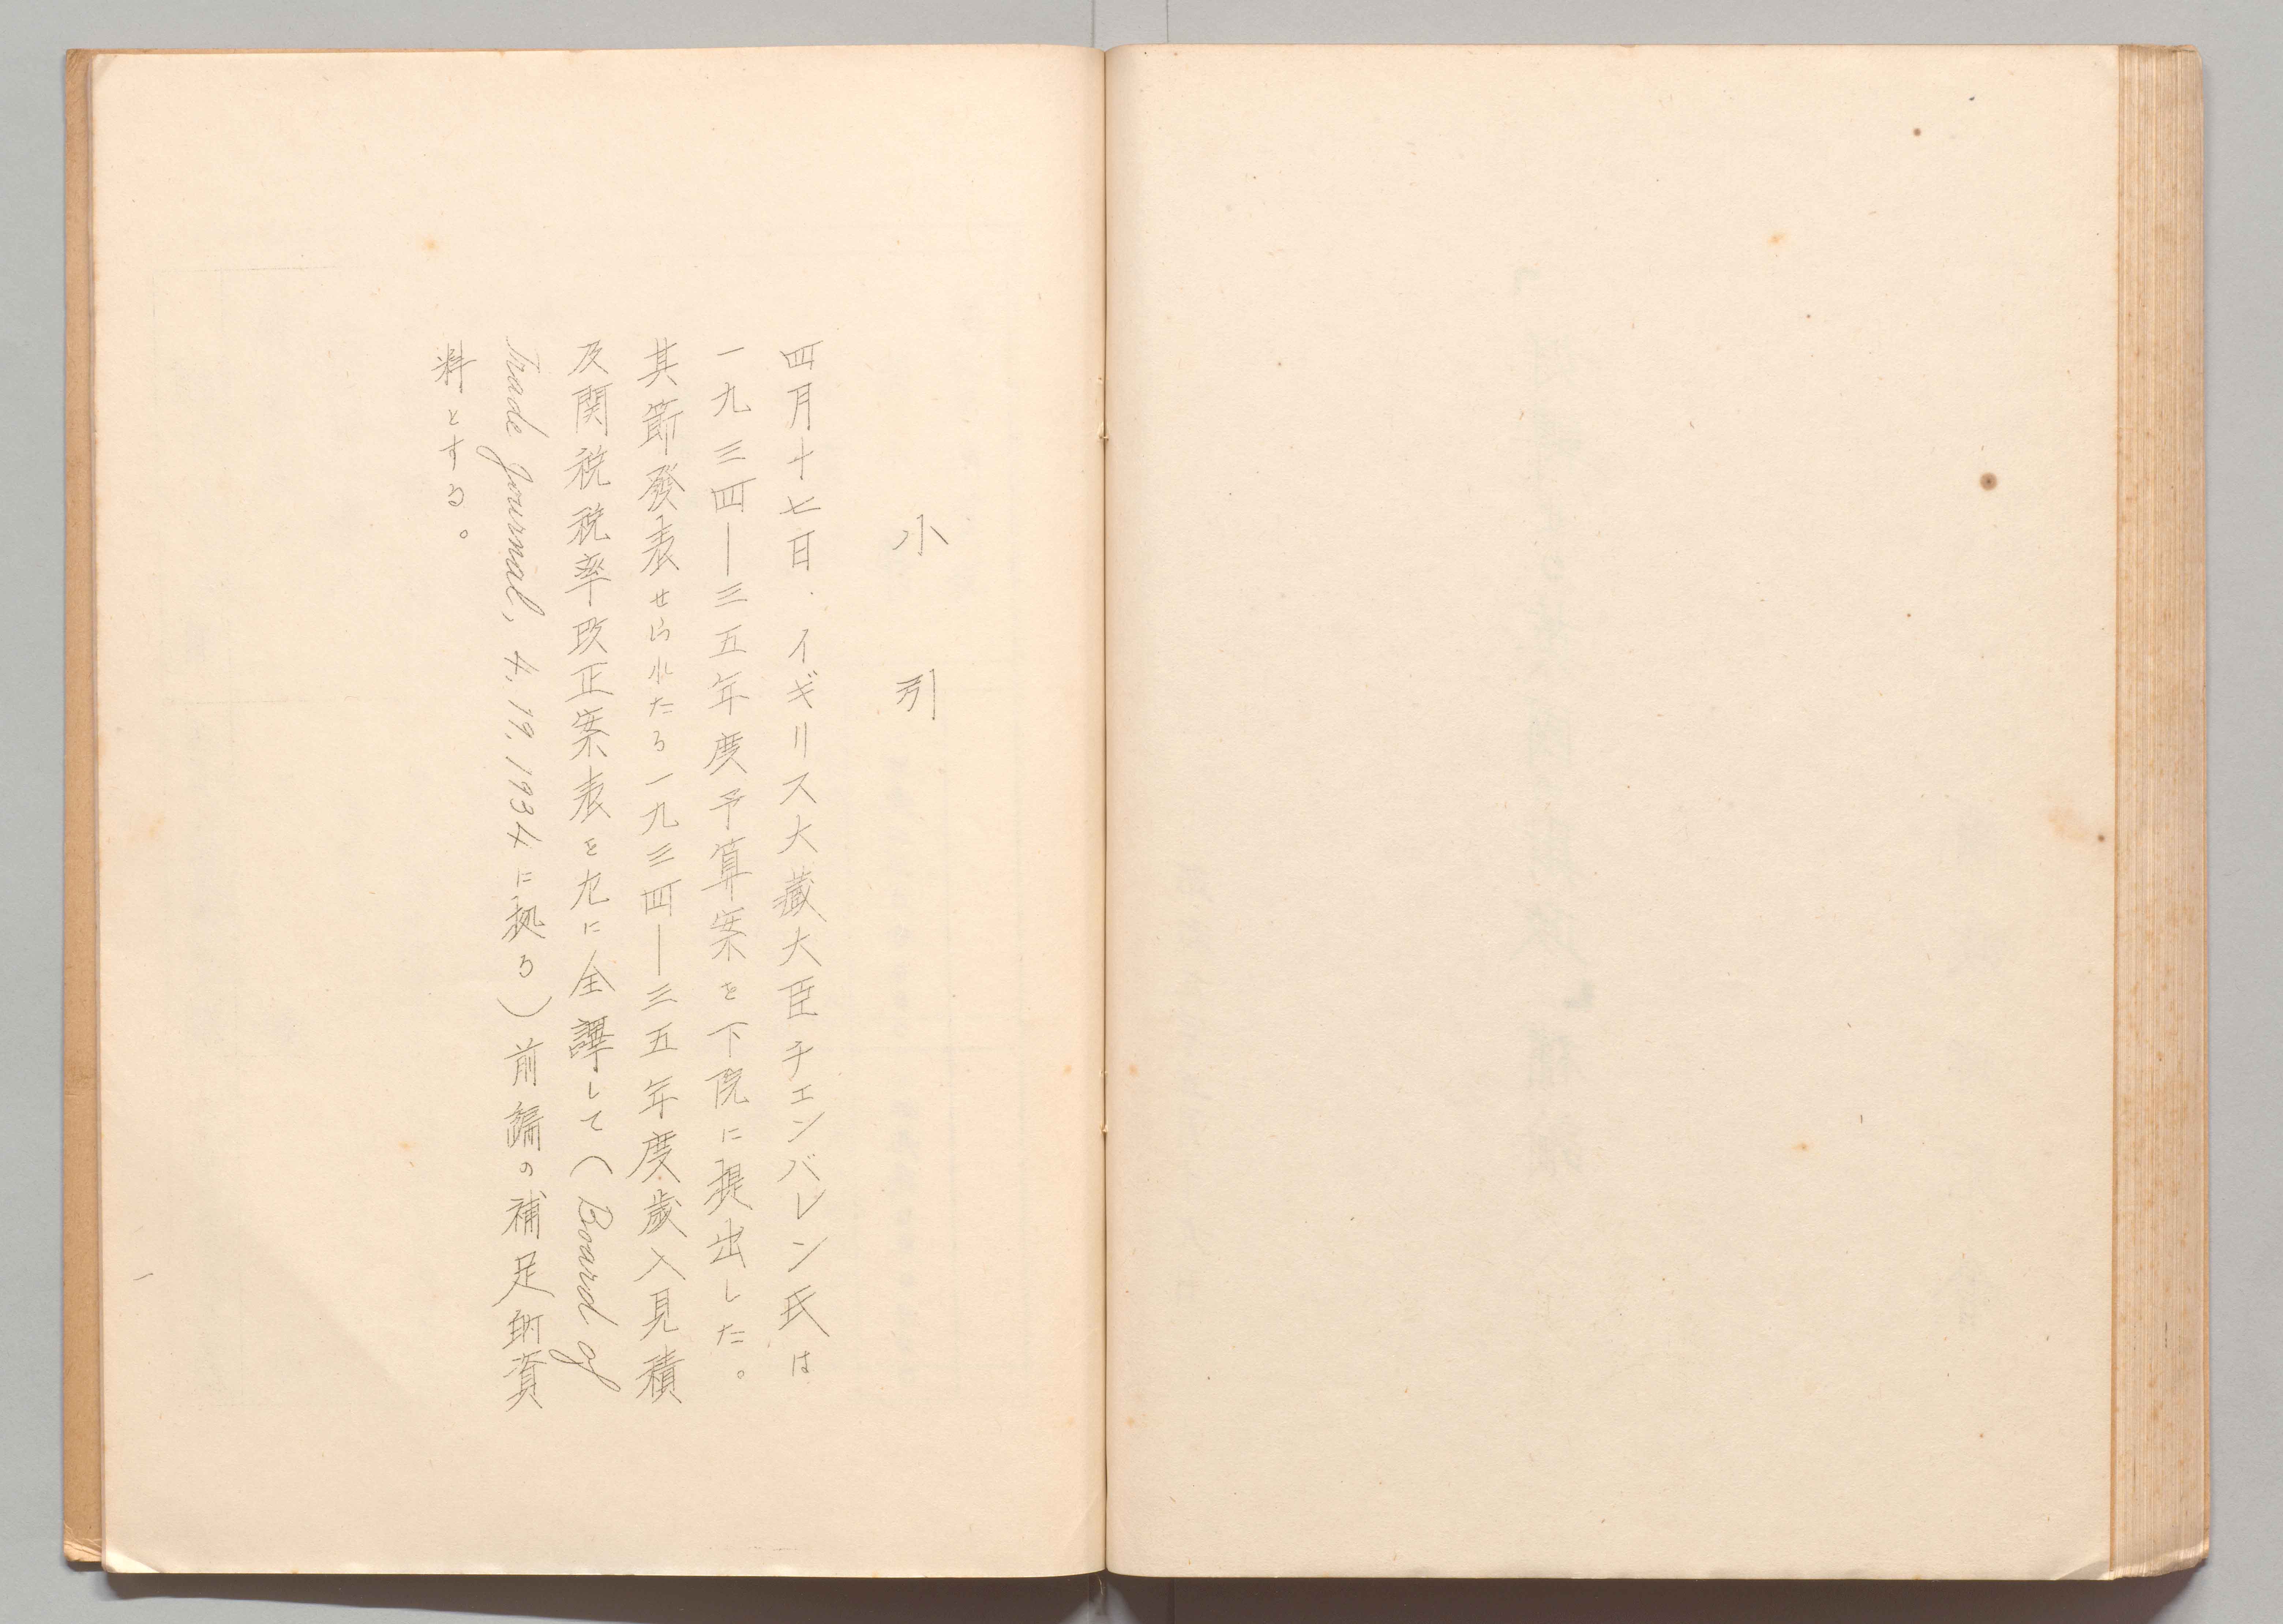 小引
四月十七日.イギリス大藏大臣チェンバレン氏は
一九三四―三五年度予算案を下院に提出した。
其節發表せられたる一九三四―三五年度歲入見積
及関税税率改正案表を九に全譯して(Board of
Trade Journal, 4, 19, 1934に拠る)前編の補足的資
料とする。
一